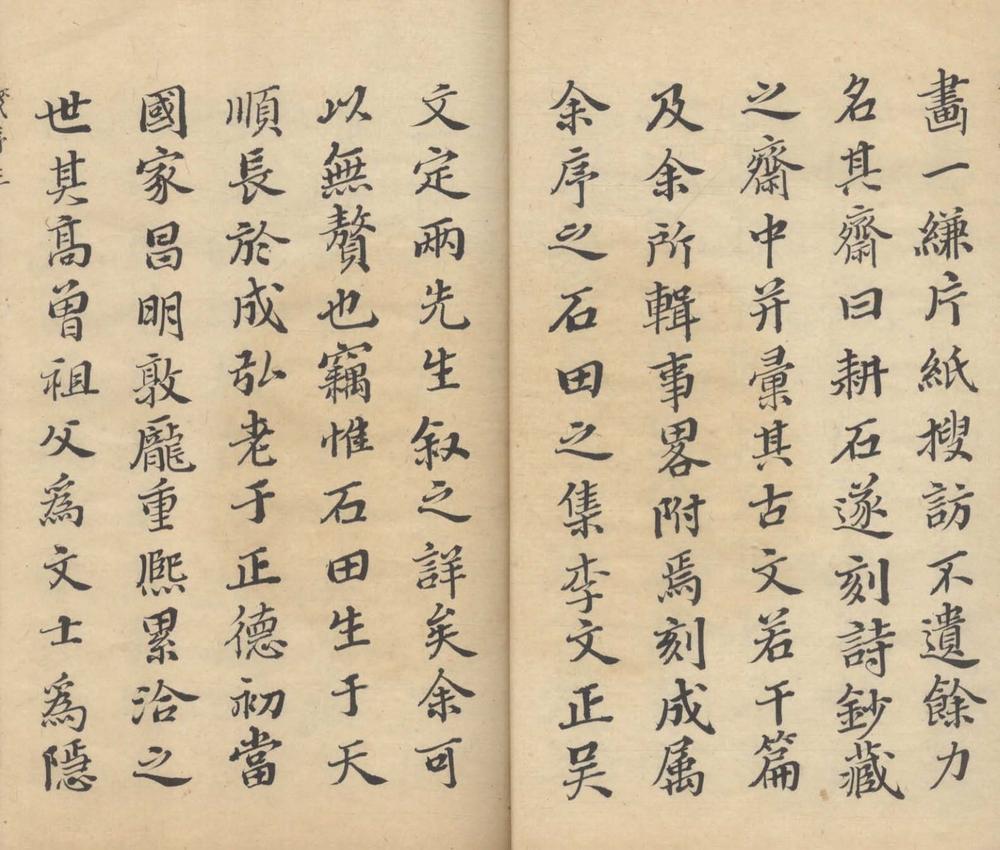 畫一縑片紙搜訪不遺餘力
名其齋曰耕石遂刻詩鈔藏
之齋中并彙其古文若干篇
及余所輯事畧附焉刻成属
余序之石田之集李文正吴
文定兩先生叙之詳矣余可
以無贅也竊惟石田生于天
順長於成弘老于正德初當
國家昌明敦龐重熈累洽之
世其髙曾祖父為文士為隱